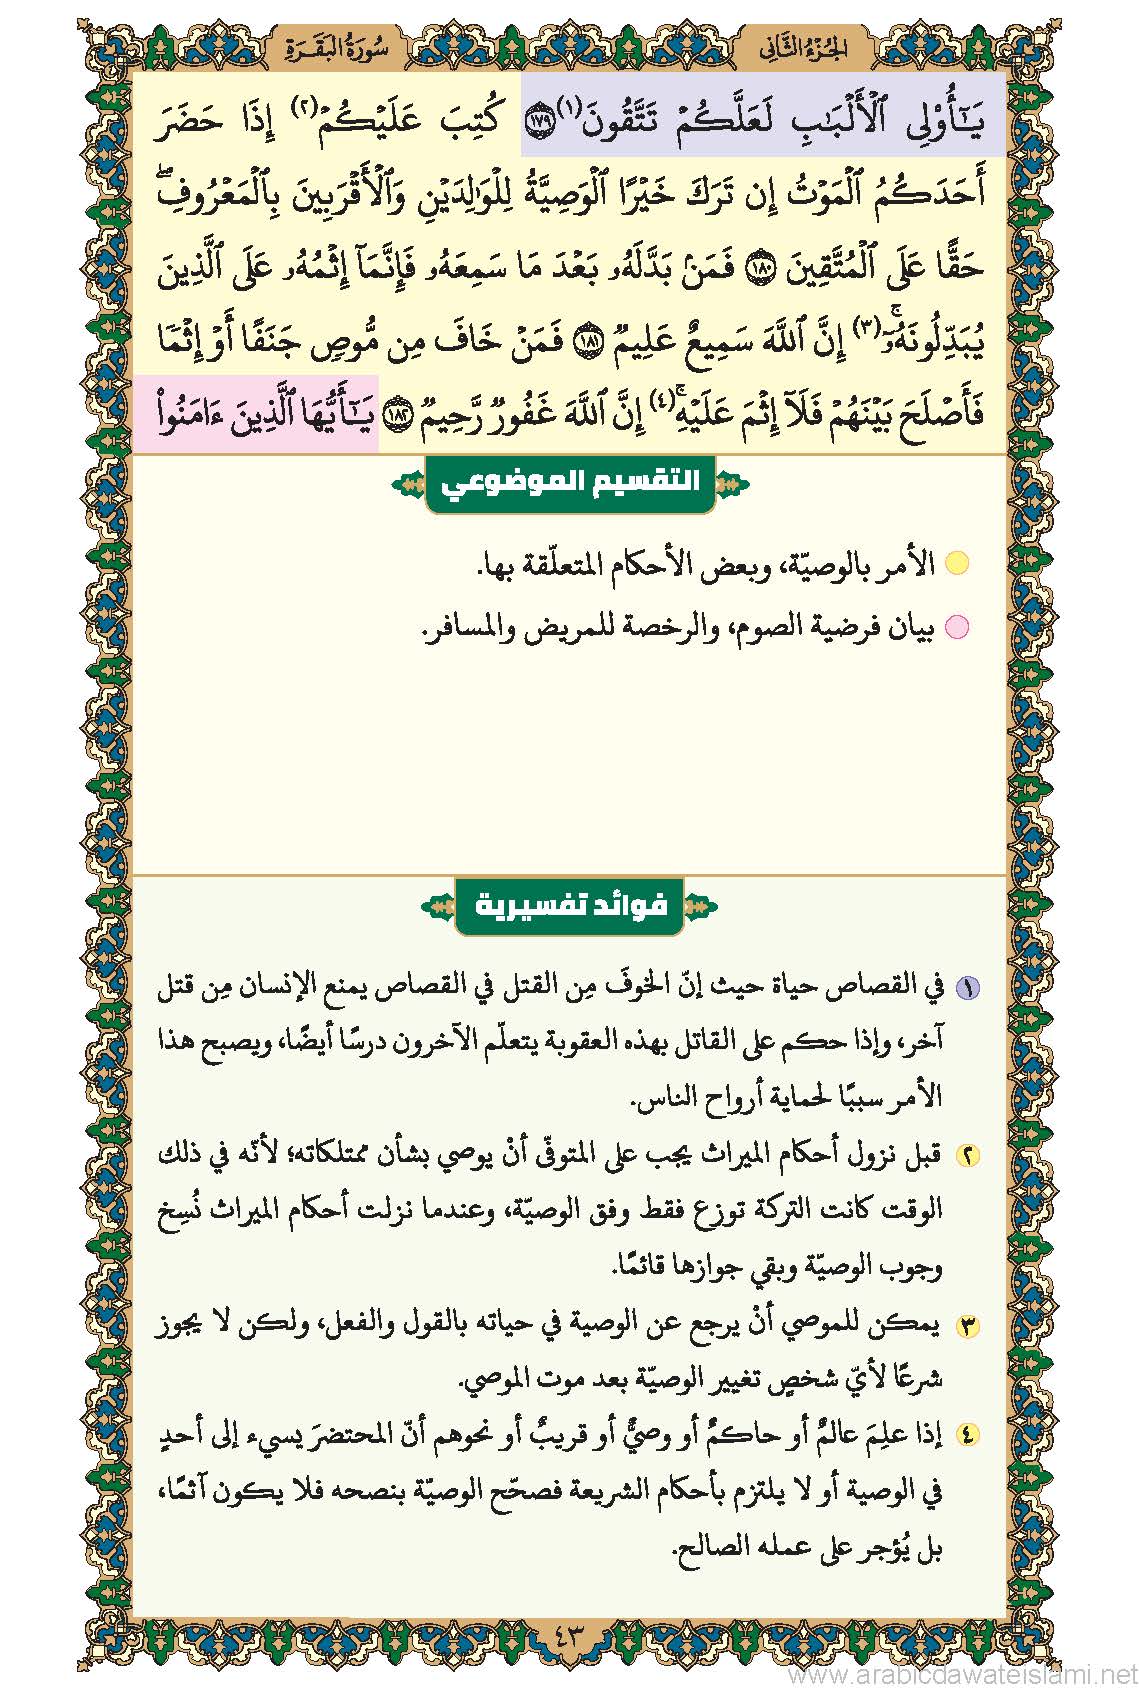 الجزء الثاني
سورة البقرة
يَـٰٓأُوْلِى ٱلْأَلْبَـٰبِ لَعَلَّكُمْ تَتَّقُونَ(١) ١٧٩ كُتِبَ عَلَيْكُمْ(٢) إِذَا حَضَرَ
أَحَدَكُمُ ٱلْمَوْتُ إِن تَرَكَ خَيْرًا ٱلْوَصِيَّةُ لِلْوَٰلِدَيْنِ وَٱلْأَقْرَبِينَ بِٱلْمَعْرُوفِۖ
حَقًّا عَلَى ٱلْمُتَّقِينَ ١٨٠ فَمَنۢ بَدَّلَهُۥ بَعْدَ مَا سَمِعَهُۥ فَإِنَّمَآ إِثْمُهُۥ عَلَى ٱلَّذِينَ
يُبَدِّلُونَهُۥٓۚ(٣) إِنَّ ٱللَّهَ سَمِيعٌ عَلِيمٌ ١٨١ فَمَنْ خَافَ مِن مُّوصٍ جَنَفًا أَوْ إِثْمًا
فَأَصْلَحَ بَيْنَهُمْ فَلَآ إِثْمَ عَلَيْهِۚ(٤) إِنَّ ٱللَّهَ غَفُورٌ رَّحِيمٌ ١٨٢ يَـٰٓأَيُّهَا ٱلَّذِينَ ءَامَنُواْ
التقسيم الموضوعي
الأمر بالوصيّة، وبعض الأحكام المتعلّقة بها.
بيان فرضية الصوم، والرخصة للمريض والمسافر.
فوائد تفسيرية
١ في القصاص حياة حيث إنّ الخوفَ مِن القتل في القصاص يمنع الإنسان مِن قتل
آخر، وإذا حكم على القاتل بهذه العقوبة يتعلّم الآخرون درسًا أيضًا، ويصبح هذا
الأمر سببًا لحماية أرواح الناس.
٢ قبل نزول أحكام الميراث يجب على المتوفّى أنْ يوصي بشأن ممتلكاته؛ لأنّه في ذلك
الوقت كانت التركة توزع فقط وفق الوصيّة، وعندما نزلت أحكام الميراث نُسِخ
وجوب الوصيّة وبقي جوازها قائمًا.
٣ يمكن للموصي أنْ يرجع عن الوصية في حياته بالقول والفعل، ولكن لا يجوز
شرعًا لأيّ شخصٍ تغيير الوصيّة بعد موت الموصي.
٤ إذا علِمَ عالمٌ أو حاكمٌ أو وصيٌّ أو قريبٌ أو نحوهم أنّ المحتضرَ يسيء إلى أحدٍ
في الوصية أو لا يلتزم بأحكام الشريعة فصحّح الوصيّة بنصحه فلا يكون آثمًا،
بل يُؤجر على عمله الصالح.
٤٣
www.arabicdawateislami.net